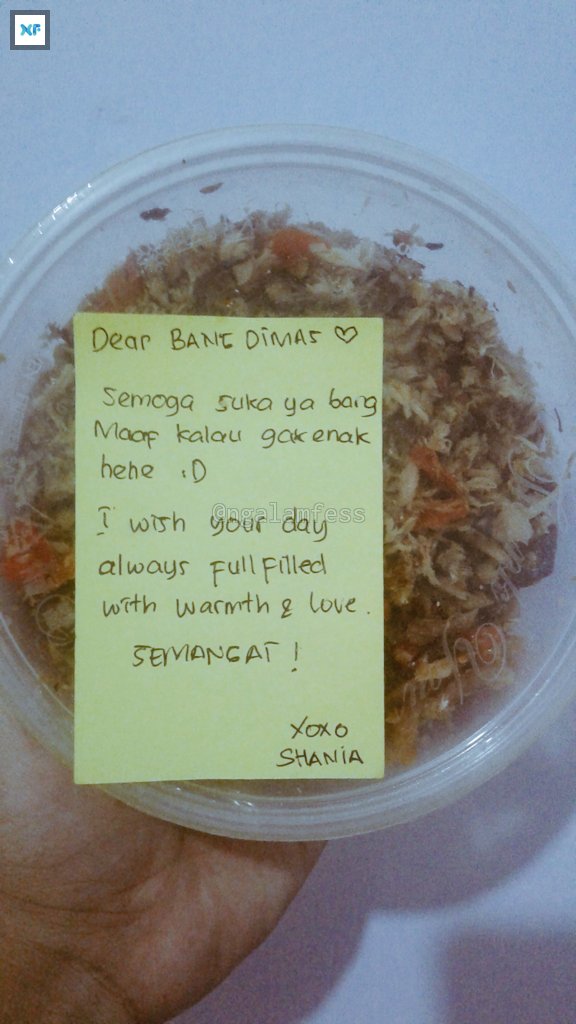 XF
Dear BANG DIMAS ♡
Semoga suka ya bang
Maaf kalau gak enak
hehe :D
@ngalamfess
I wish your day
always fullfilled
with warmth & love.
SEMANGAT !
XOXO
SHANIA